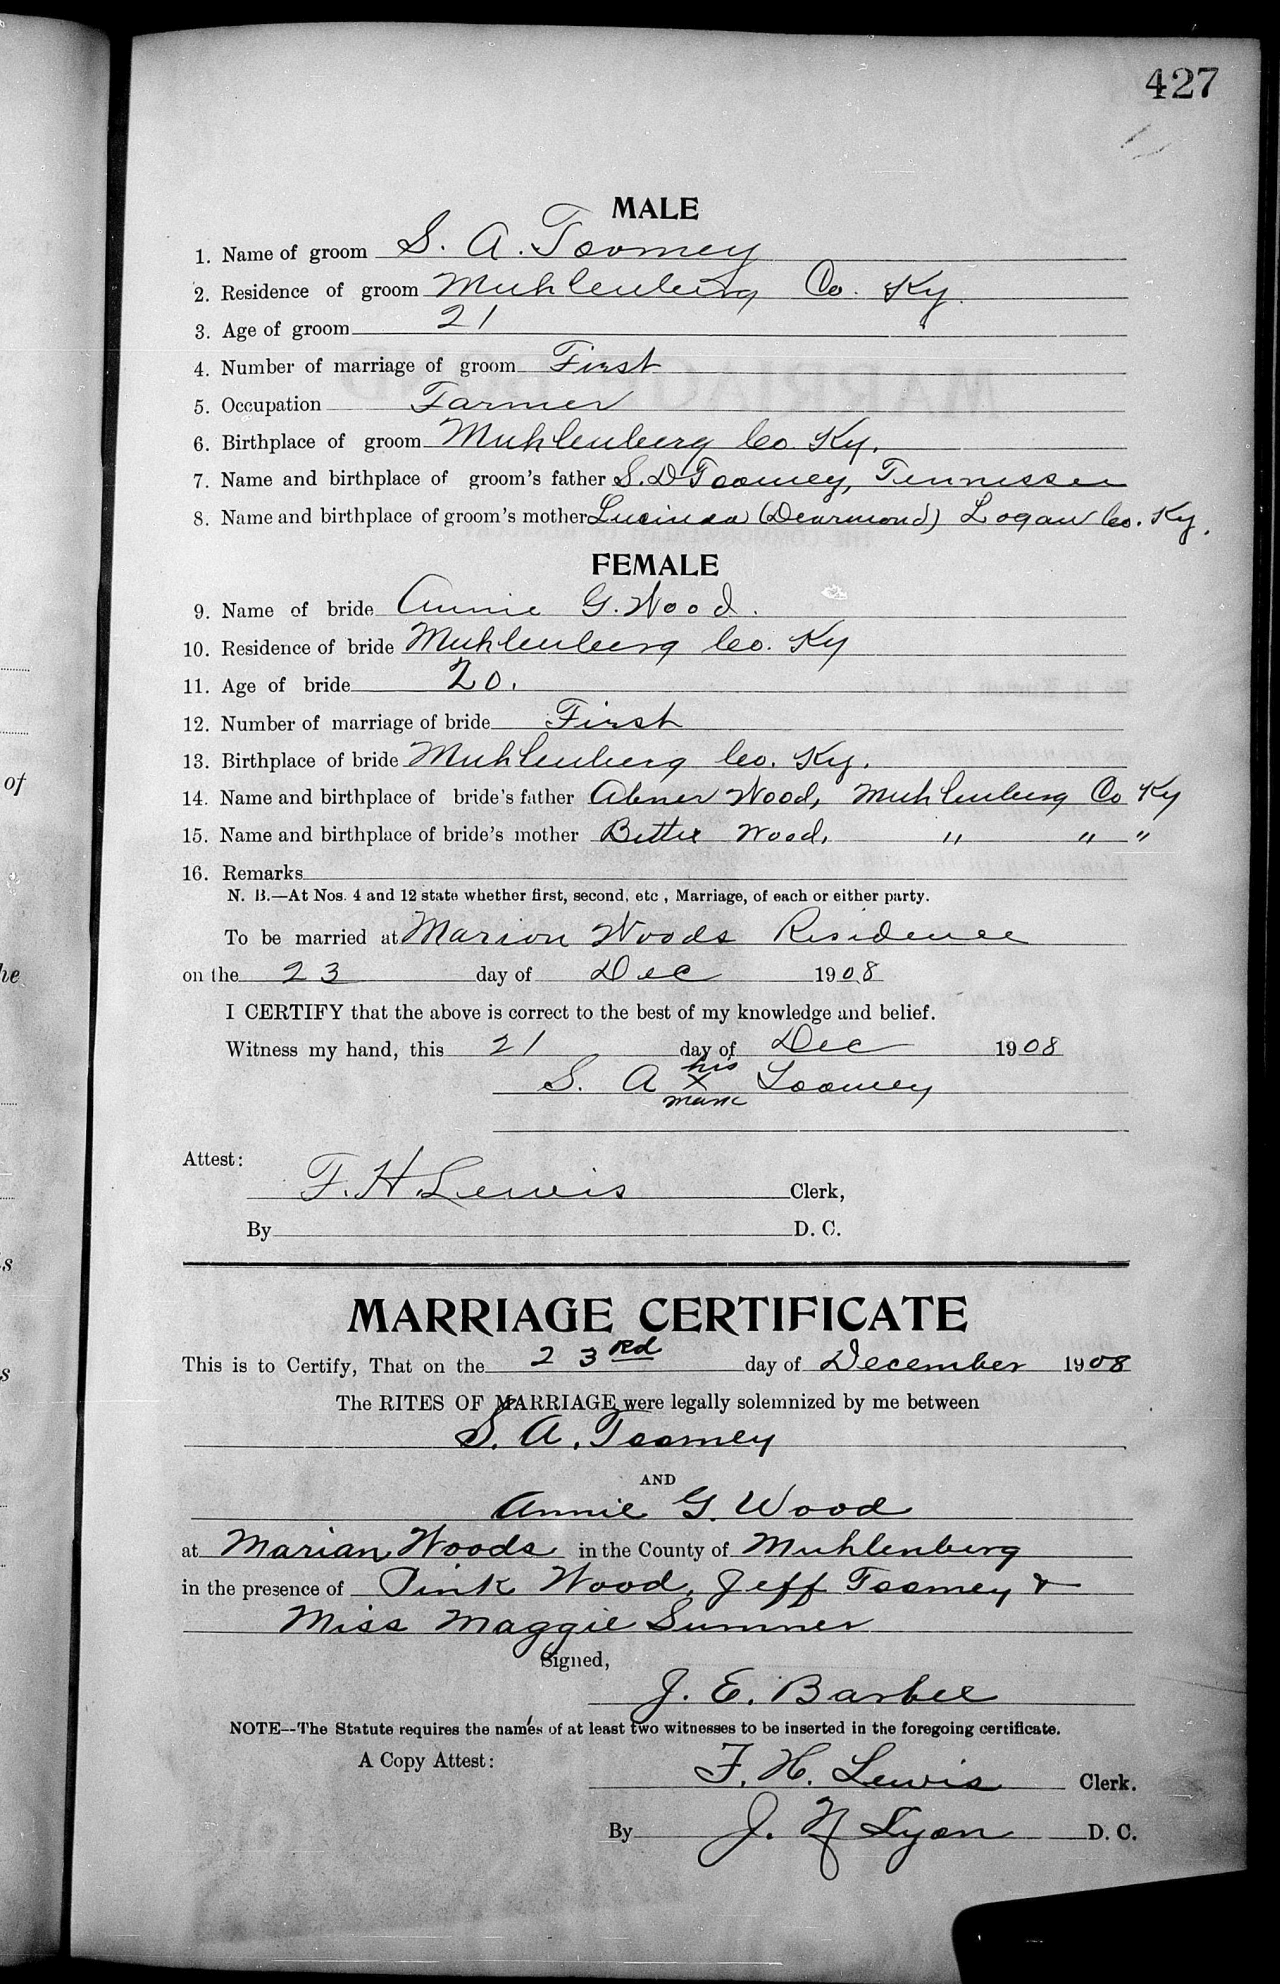 427
MALE
1. Name of groom S. A. Toomey
2. Residence of groom Muhlenberg Co. Ky.
3. Age of groom 21
4. Number of marriage of groom First
5. Occupation Farmer
6. Birthplace of groom Muhlenberg Co. Ky.
7. Name and birthplace of groom's father S. D Toomey, Tennessee
8. Name and birthplace of groom's mother Lucinda (Dearmond) Logan Co. Ky.
FEMALE
9. Name of bride Annie G. Wood.
10. Residence of bride Muhlenberg Co. Ky
11. Age of bride 20.
12. Number of marriage of bride First
13. Birthplace of bride Muhlenberg Co. Ky.
14. Name and birthplace of bride's father Abner Wood, Muhlenberg Co Ky
15. Name and birthplace of bride's mother Bettie Wood, " " "
16. Remarks
N. B.—At Nos. 4 and 12 state whether first, second, etc , Marriage, of each or either party.
To be married at Marion Woods Residence
on the 23 day of Dec 1908
I CERTIFY that the above is correct to the best of my knowledge and belief.
Witness my hand, this 21 day of Dec 1908
his
S. A X Toomey
mark
Attest:
F. H. Lewis Clerk,
By D. C.
MARRIAGE CERTIFICATE
This is to Certify, That on the 23rd day of December 1908
The RITES OF MARRIAGE were legally solemnized by me between
S. A. Toomey
AND
Annie G. Wood
at Marian Woods in the County of Muhlenberg
in the presence of Pink Wood, Jeff Toomey &
Miss Maggie Sumner
Signed,
J. E. Barbee
NOTE--The Statute requires the names of at least two witnesses to be inserted in the foregoing certificate.
A Copy Attest:
F. H. Lewis Clerk.
By J. N Lyon D. C.